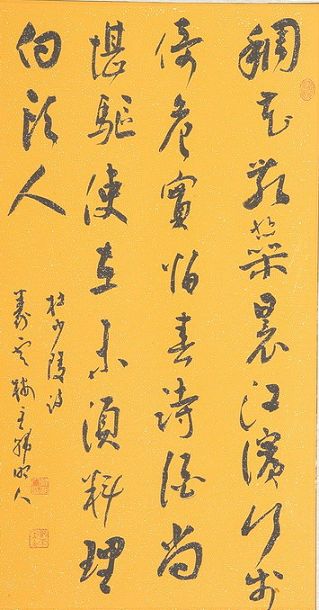 稠花亂蕊裹江濱行步
倚危實怕春詩酒尚
堪驅使在未須料理
白頭人
杜少陵詩